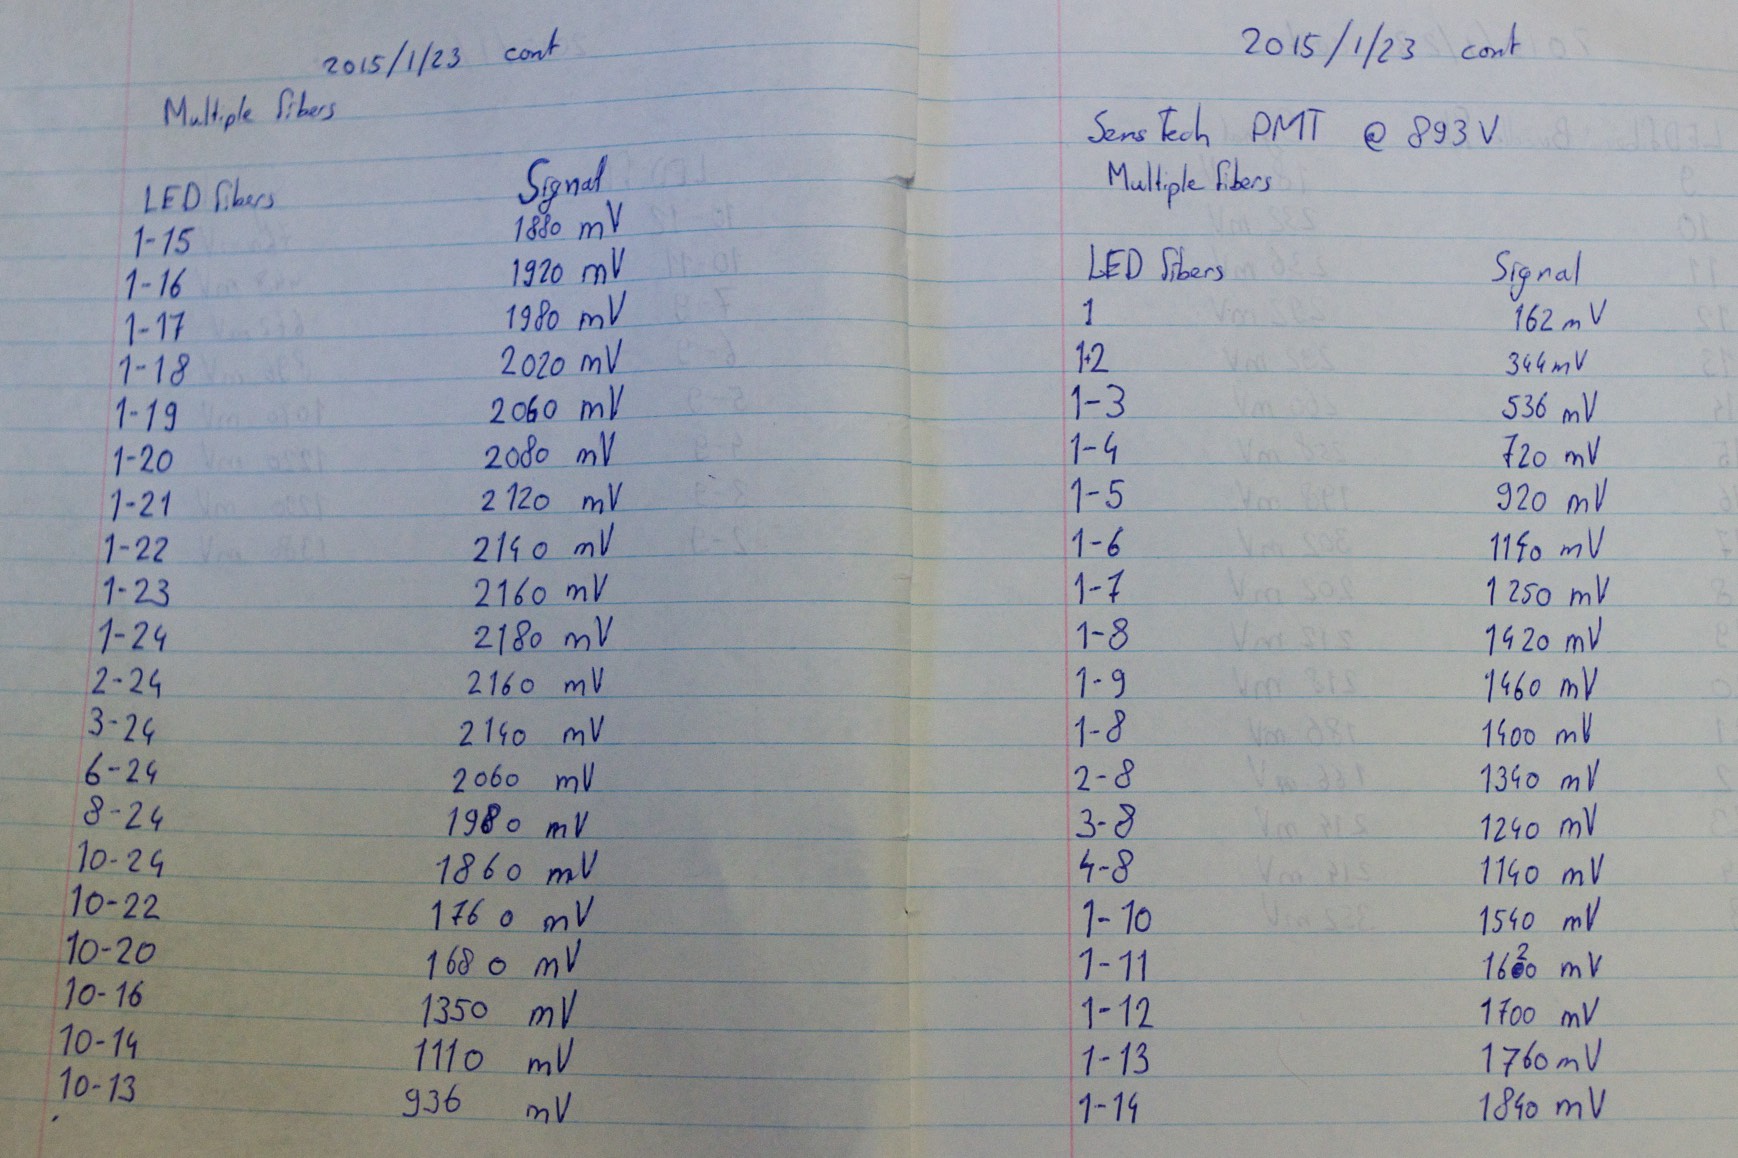 2015/1/23 cont
Multiple fibers
LED fibers Signal
1-15 1880 mV
1-16 1920 mV
1-17 1980 mV
1-18 2020 mV
1-19 2060 mV
1-20 2080 mV
1-21 2120 mV
1-22 2140 mV
1-23 2160 mV
1-24 2180 mV
2-24 2160 mV
3-24 2140 mV
6-24 2060 mV
8-24 1980 mV
10-24 1860 mV
10-22 1760 mV
10-20 1680 mV
10-16 1350 mV
10-14 1110 mV
10-13 936 mV
2015/1/23 cont
SensTech PMT @ 893 V
Multiple fibers
LED fibers Signal
1 162 mV
1-2 344 mV
1-3 536 mV
1-4 720 mV
1-5 920 mV
1-6 1140 mV
1-7 1250 mV
1-8 1420 mV
1-9 1460 mV
1-8 1400 mV
2-8 1340 mV
3-8 1240 mV
4-8 1140 mV
1-10 1540 mV
1-11 1620 mV
1-12 1700 mV
1-13 1760 mV
1-14 1840 mV